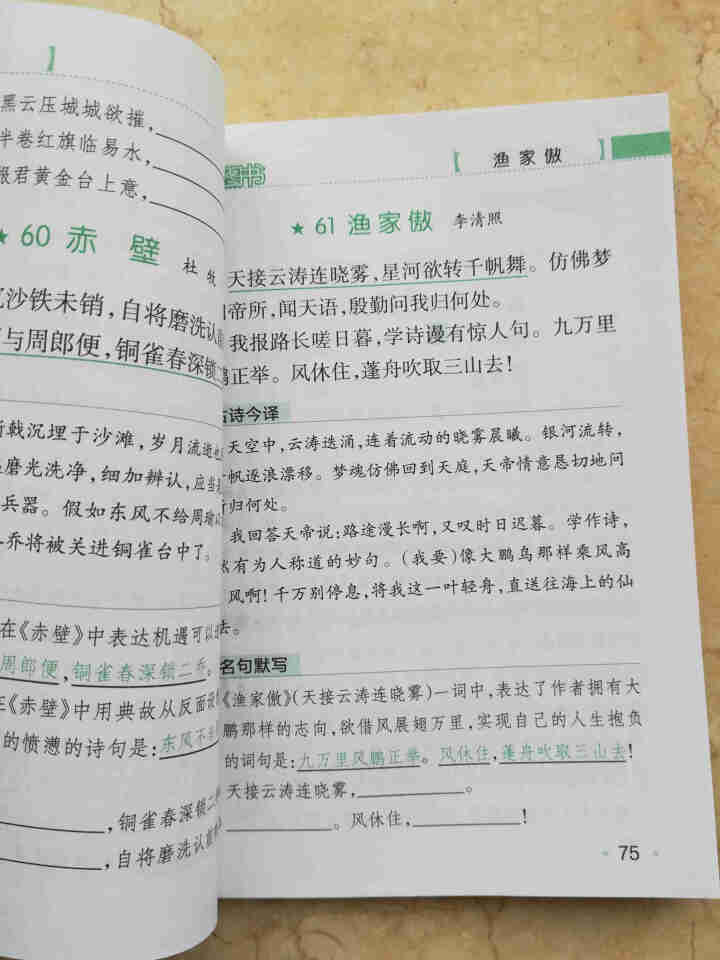 】
黑云压城城欲摧,
半卷红旗临易水,
报君黄金台上意,
★ 60 赤 壁
杜 牧
沉沙铁未销,自将磨洗认前
与周郎便,铜雀春深锁二
戟沉埋于沙滩,岁月流逝
磨光洗净,细加辨认,应当
兵器。假如东风不给周瑜以
乔将被关进铜雀台中了。
在《赤壁》中表达机遇可以
周郎便,铜雀春深锁二乔。
在《赤壁》中用典故从反面设
的愤懑的诗句是:东风不
,铜雀春深锁二
,自将磨洗认前
图书
【 渔 家 傲 】
★ 61 渔 家 傲 李清照
天接云涛连晓雾,星河欲转千帆舞。仿佛梦
帝所,闻天语,殷勤问我归何处。
我报路长嗟日暮,学诗谩有惊人句。九万里
鹏正举。风休住,蓬舟吹取三山去!
古诗今译
天空中,云涛迭涌,连着流动的晓雾晨曦。银河流转,
帆逐浪漂移。梦魂仿佛回到天庭,天帝情意恳切地问
归何处。
我回答天帝说:路途漫长啊,又叹时日迟暮。学作诗,
有为人称道的妙句。(我要)像大鹏鸟那样乘风高
风啊!千万别停息,将我这一叶轻舟,直送往海上的仙
去。
名句默写
《渔家傲》(天接云涛连晓雾)一词中,表达了作者拥有大
鹏那样的志向,欲借风展翅万里,实现自己的人生抱负
的词句是:九万里风鹏正举。风休住,蓬舟吹取三山去!
天接云涛连晓雾, 。
。风休住, !
75